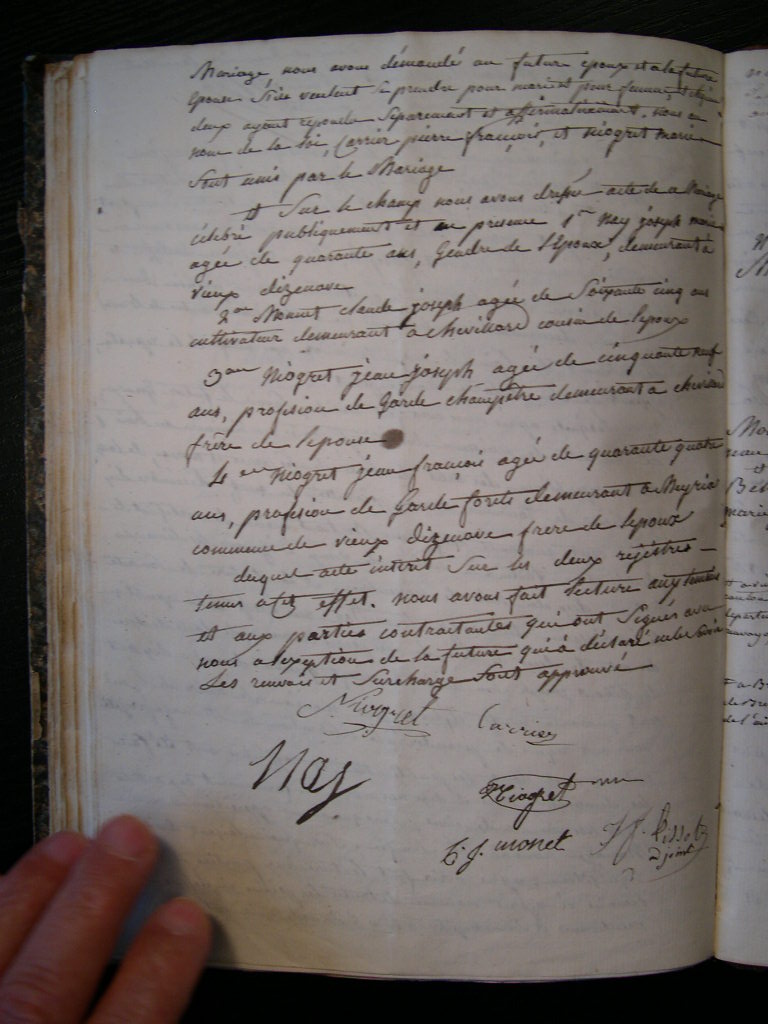 Mariage, nous avons démandé au futur epoux et a la future
Epouse S'ils veulent se prendre pour mari et pour femme, et chacun
deux ayant repondu Separement et affirmativement, nous au
nom de la loi, Carrier pierre françois, et Niogret marie
Sont unis par le Mariage
Et Sur le champ nous avons dressé acte de ce Mariage
célébré publiquement et en presence 1er Nay joseph marie
agée de quarante ans, Gendre de l'Epoux, demeurant a
vieux dizenave
2em Monnet claude joseph agée de Soixante cinq ans
cultivateur demeurant a chevillard cousin de lepoux
3em Niogret jean joseph agée de cinquante neuf
ans, profision de Garde champêtre demeurant a chevillard
frère de lepouse
4em Niogret jean françois agée de quarante quatre
ans, profision de Garde forets demeurant a Meyriat
commune de vieux dizenave frere de lepoux
duquel acte inscrit Sur les deux rejistres
tenus a cet effet. nous avons fait lecture aux temoins
et aux parties contractantes qui ont Signés avec
nous a l'exeption de la future qui a déclaré ne le Savoir
Les renvois et Surcharge Sont approuvé
Niogret Carrier
Nay
Niogret
C. J. monet
adjoint